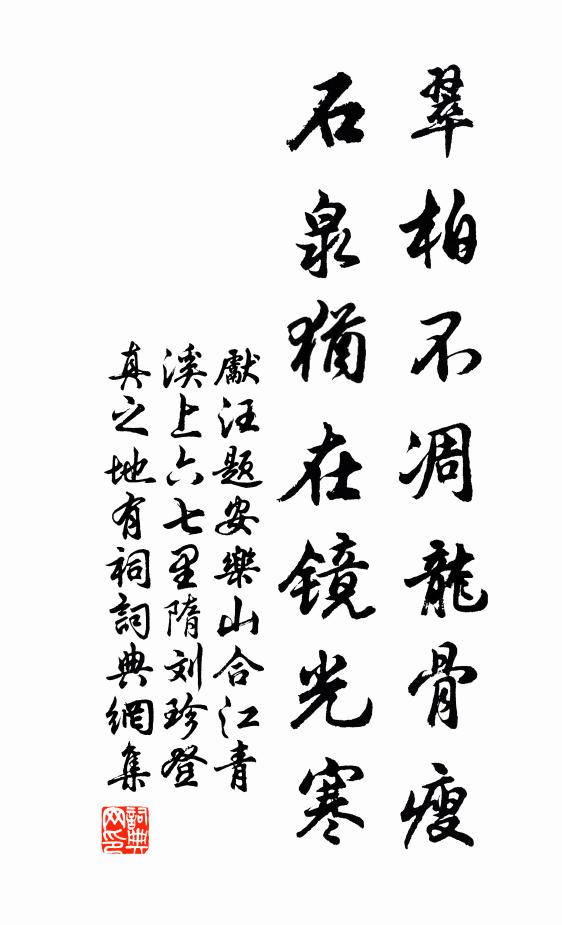 翠柏不凋龍骨瘦
石泉猶在镜光寒
獻汪题安樂山合江青
溪上六七里隋刘珍登
真之地有祠詞典網集
詞典
网印